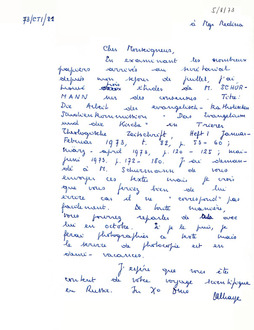 I/8/73
73/CTI/21
à Mgr Medina
Cher Monseigneur,
En examinant les nombreux
papiers arrivés au secrétariat
depuis mon séjour de juillet, j'ai
trouvé trois études de M. SCHUR-
MANN sur des Titre:
Die Arbeit der evangelisch-katholischen
Studienkommission "Das Evangelium
und die Kirche" in Trierer
Theologische Zeitschrift, Heft 1 Januar-
Februar 1973, t. 82, p.
mars-avril 1973, p. mai-
juni 1973, p. 172 - 180. J'ai deman-
dé à M. Schurmann de vous
envoyer ces textes mais je crois
que vous feriez bien de lui
écrire car il ne "correspond" pas
De toute manière,
vous pourrez reparler de avec
lui en octobre. Si je le puis, je
ferai photographier ce texte mais
le service de photocopie est en
demi-vacances.
J'espère que vous été
content de votre voyage
en Russie. In Xo Dno
Delhaye